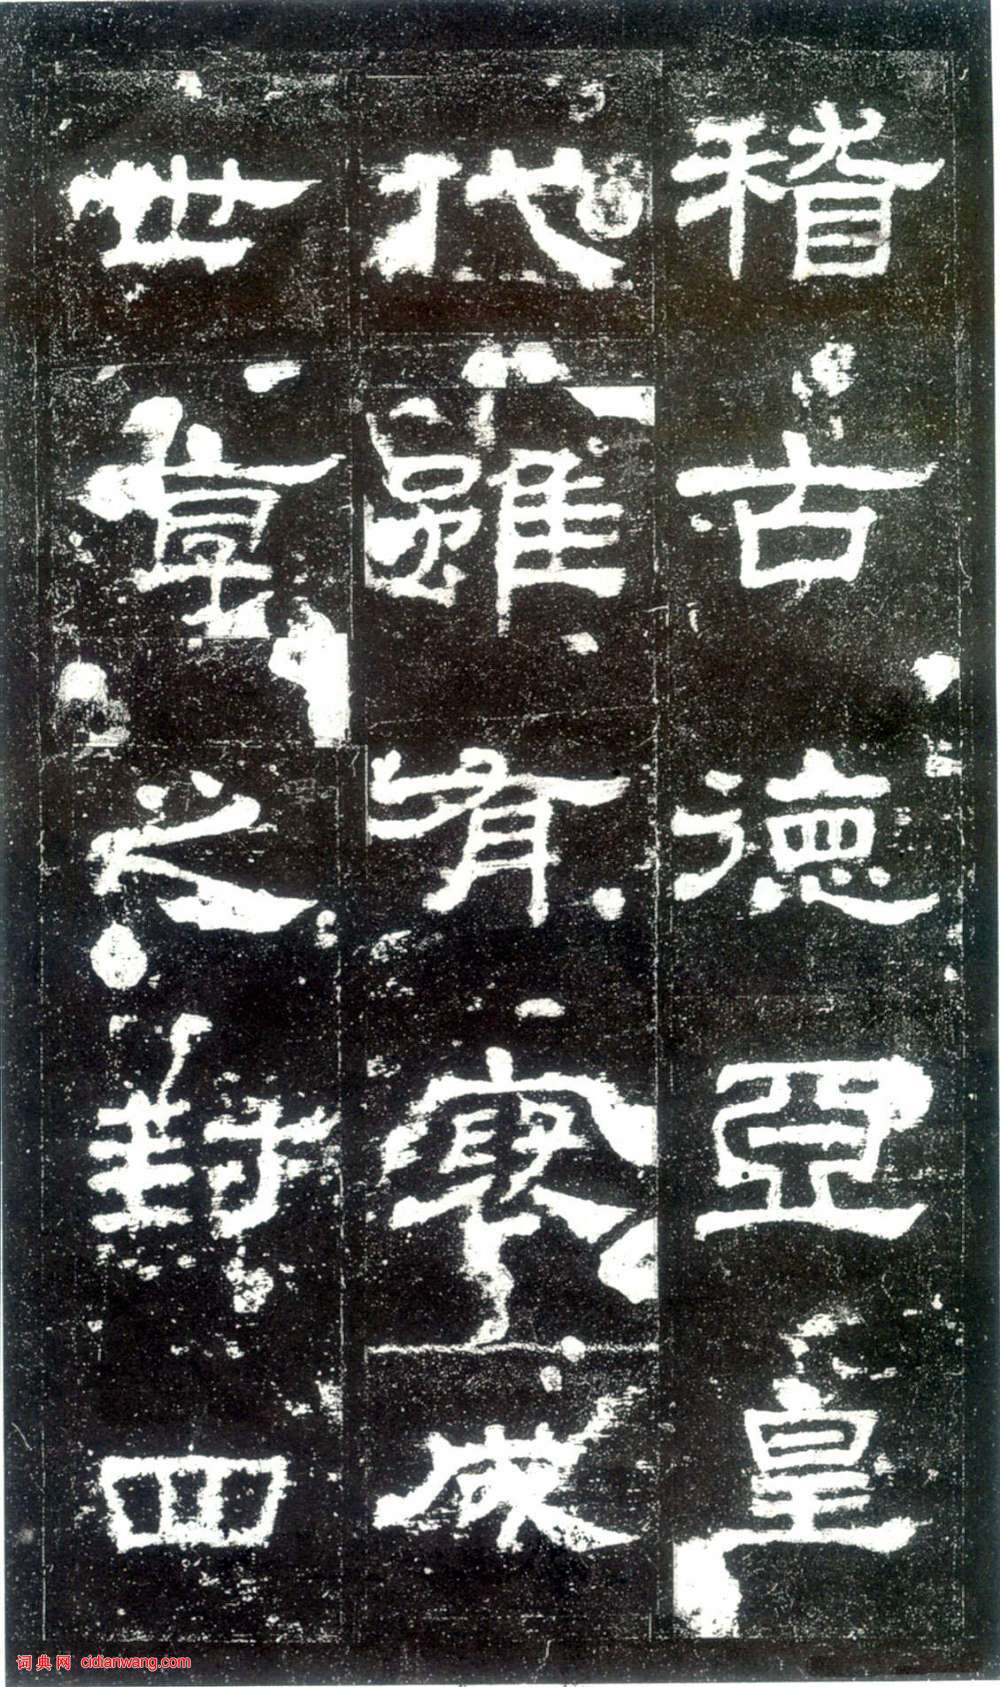 稽古德亞皇
代雖有褒成
世享之封四
词典网 cidianwang.com